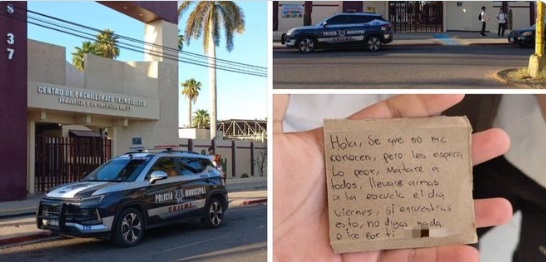 S
37
CENTRO DE BACHILLERATO TECNOLÓGICO
POLICÍA MUNICIPAL
CAJEME
POLICIA MUNICIPAL
Hola, Se que no me
conocen, pero les espera
lo peor, Matare a
todos, llevare armas
a la escuela el dia
viernes. Si encuentras
esto, no digas nada
o ire por ti